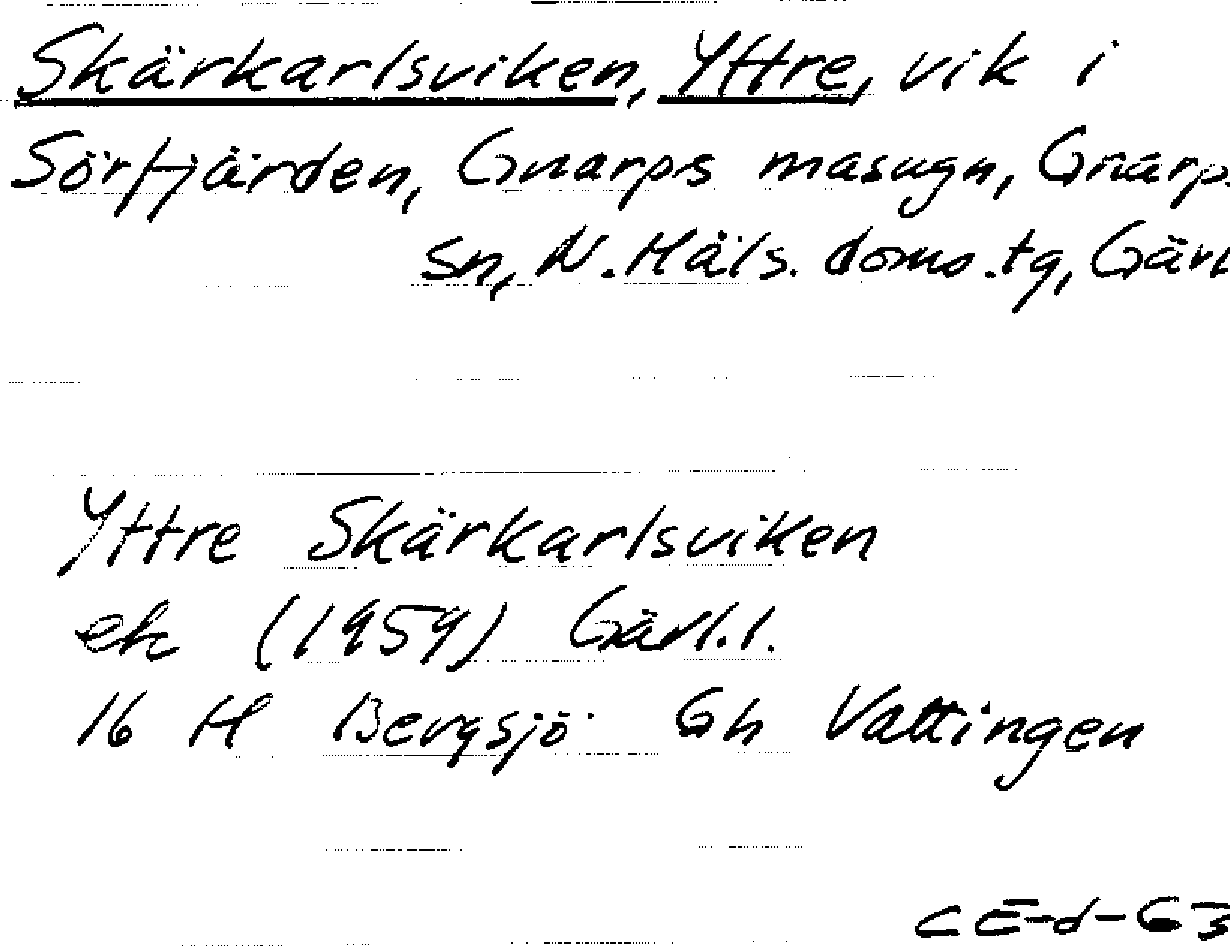 Skärkarlsviken, Yttre, vik i
Sörfjärden, Gnarps masugn, Gnarps
sn, N. Häls. doms. tg, Gävl
Yttre Skärkarlsviken
ek (1959) Gävl.l.
16 H Bergsjö Gh Vattingen
CE-d-63